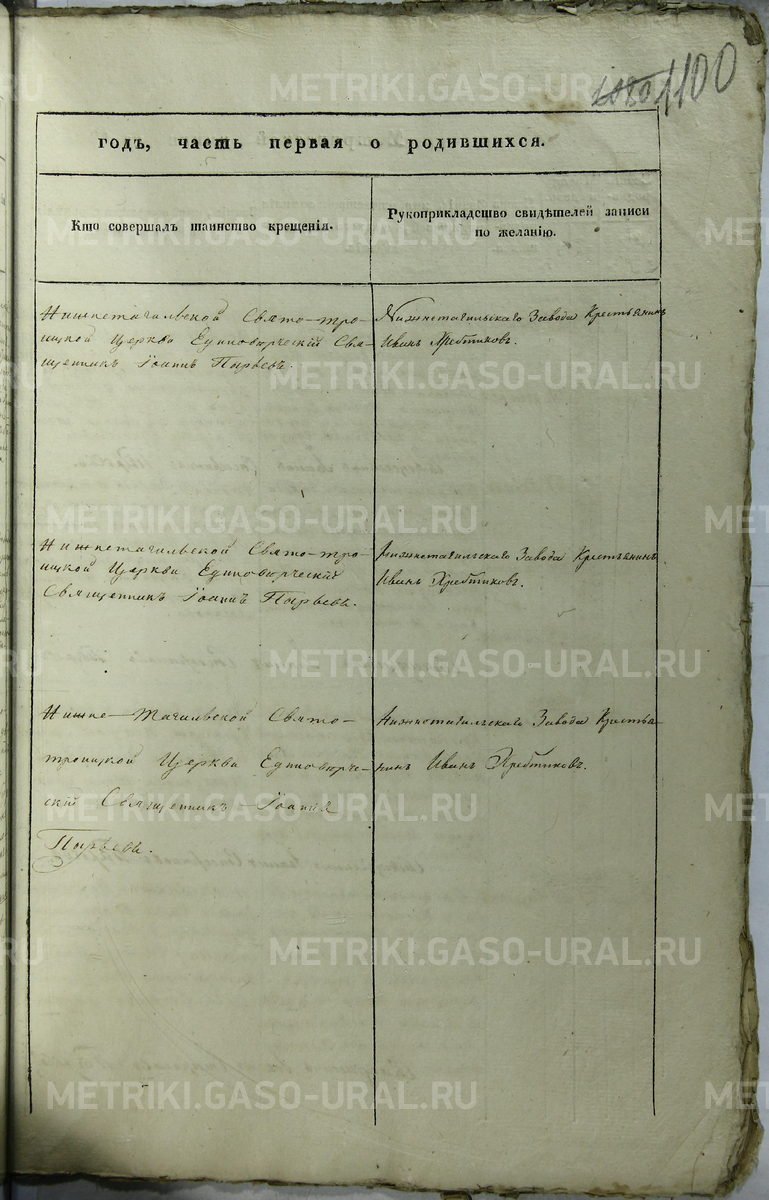 1080 1100
годъ, часть первая о родившихся.
Кто совершалъ таинство крещенія.
Рукоприкладство свидѣтелей записи
по желанію.
Нижнетагильской Свято-тро-
ицкой Церкви Единовѣрческій Свя-
щенникъ Іоаннъ Пырьевъ.
Нижнетагильскаго Завода Крестьянинъ
Иванъ Хребтиковъ.
Нижнетагильской Свято-тро-
ицкой Церкви Единовѣрческій
Священникъ Іоаннъ Пырьевъ.
Нижнетагильскаго Завода Крестьянинъ
Иванъ Хребтиковъ.
Нижне-Тагильской Свято-
троицкой Церкви Единовѣрче-
скій Священникъ Іоаннъ
Пырьевъ.
Нижнетагильскаго Завода Крестья-
нинъ Иванъ Хребтиковъ.
METRIKI.GASO-URAL.RU